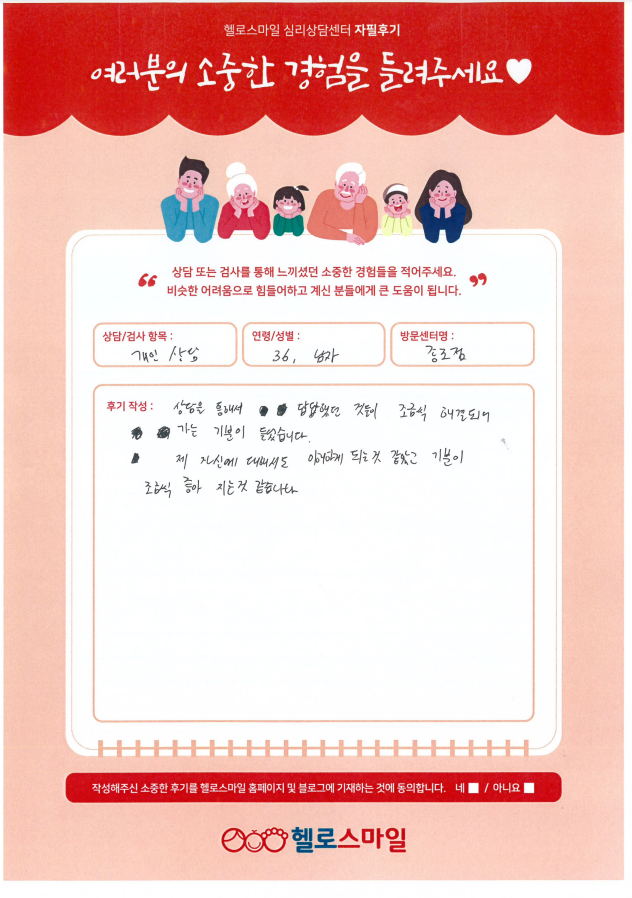 헬로스마일 심리상담센터 자필후기
여러분의 소중한 경험을 들려주세요
상담 또는 검사를 통해 느끼셨던 소중한 경험들을 적어주세요.
비슷한 어려움으로 힘들어하고 계신 분들에게 큰 도움이 됩니다.
상담/검사 항목 : 개인 상담
연령/성별 : 36, 남자
방문센터명 : 종로점
후기 작성 : 상담을 통해서 답답했던 것들이 조금씩 해결되어
가는 기분이 들었습니다.
제 자신에 대해서도 이해하게 되는것 같았고 기분이
조금씩 좋아 지는것 같습니다
작성해주신 소중한 후기를 헬로스마일 홈페이지 및 블로그에 기재하는 것에 동의합니다. 네 / 아니요
헬로스마일